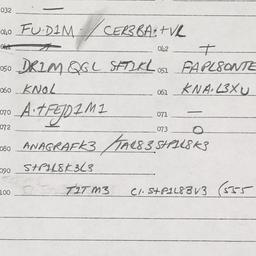 032 —
040 FU·D1M / CER3BA·+VL
041 — 042 +
050 DR1MQGL SFT1KL 051 FAPL8ONTE
060 KNOL 061 KNA·L3XU
070 A·+FEJD1M1 071 —
072 — 073 O
080 ANAGRAFK3 / TAL83 S+P1L8K3
090 S+P1L8K3L3
100 T1TM3 C1·S+P1L83V3 (555